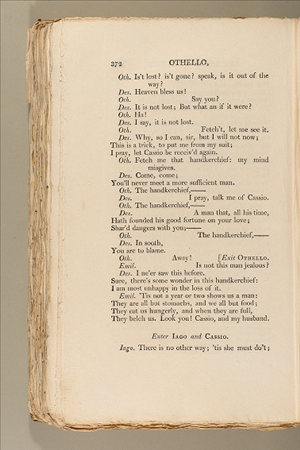 372 OTHELLO,
Oth. Is't lost? is't gone? speak, is it out of the
way?
Des. Heaven bless us!
Oth. Say you?
Des. It is not lost; But what an if it were?
Oth. Ha!
Des. I say, it is not lost.
Oth. Fetch't, let me see it.
Des. Why, so I can, sir, but I will not now;
This is a trick, to put me from my suit;
I pray, let Cassio be receiv'd again.
Oth. Fetch me that handkerchief: my mind
misgives.
Des. Come, come;
You'll never meet a more sufficient man.
Oth. The handkerchief,——
Des. I pray, talk me of Cassio.
Oth. The handkerchief,——
Des. A man that, all his time,
Hath founded his good fortune on your love;
Shar'd dangers with you;——
Oth. The handkerchief,——
Des. In sooth,
You are to blame.
Oth. Away! [Exit OTHELLO.
Emil. Is not this man jealous?
Des. I ne'er saw this before.
Sure, there's some wonder in this handkerchief:
I am most unhappy in the loss of it.
Emil. 'Tis not a year or two shows us a man:
They are all but stomachs, and we all but food;
They eat us hungerly, and when they are full,
They belch us. Look you! Cassio, and my husband.
Enter IAGO and CASSIO.
Iago. There is no other way; 'tis she must do't;